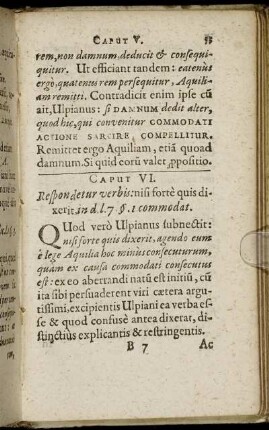 CAPUT V. 33
rem, non damnum deducit & consequi-
quitur. Ut efficiant tandem: eatenus
ergo, quatenus rem persequitur, Aquili-
am remitti. Contradicit enim ipse cū
ait, Ulpianus: si DAMNUM dedit alter,
quod hic, qui convenitur COMMODATI
ACTIONE SARCIRE, COMPELLITUR.
Remittet ergo Aquiliam, etiā quoad
damnum. Si quid eorū valet ꝓpositio.
CAPUT VI.
Respondetur verbis: nisi fortè quis di-
xerit. in d. l. 7 §. 1 commodat.
QUod verò Ulpianus subnectit:
nisi forte quis dixerit, agendo eum
è lege Aquilia hoc minus consecuturum,
quam ex causa commodati consecutus
est: ex eo aberrandi natū est initiū, cū
ita sibi persuaderent viri cætera argu-
tissimi, excipientis Ulpiani ea verba es-
se & quod confusè antea dixerat, di-
stinctius explicantis & restringentis.
B 7 Ac